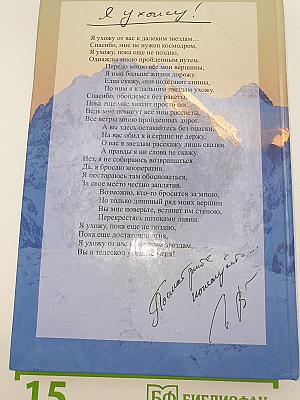 Я ухожу!
Я ухожу от вас к далеким звездам...
Спасибо, мне не нужен космодром,
Я ухожу, пока еще не поздно,
Однажды мною пройденным путем.
Передо мною все мои вершины,
Я ими больше жизни дорожу.
Едва скажу, они подставят спины,
По ним я к дальним звездам ухожу.
Спасибо, обойдемся без ракеты,
Пока еще хватит просто ног.
Ведь мне помогут все мои рассветы,
Все ветры мною пройденных дорог.
А вы здесь оставайтесь без опаски,
На вас обид я в сердце не держу,
О нас в звездам расскажу лишь сказки,
А правды я ни слова не скажу.
Нет, я не собираюсь возвращаться.
Да, я бросаю кооператив.
Я постараюсь там обосноваться,
За свое место честно заплатив.
Возможно, кто-то бросится за мною,
Но только длинный ряд моих вершин
Вы мне поверьте, встанет им стеною,
Перекрестясь потоками лавин.
Я ухожу, пока еще не поздно,
Пока еще достаточно огня,
Я ухожу от вас к далеким звездам,
Вы в телескоп меня!
15
БФ БИБЛИОФАН